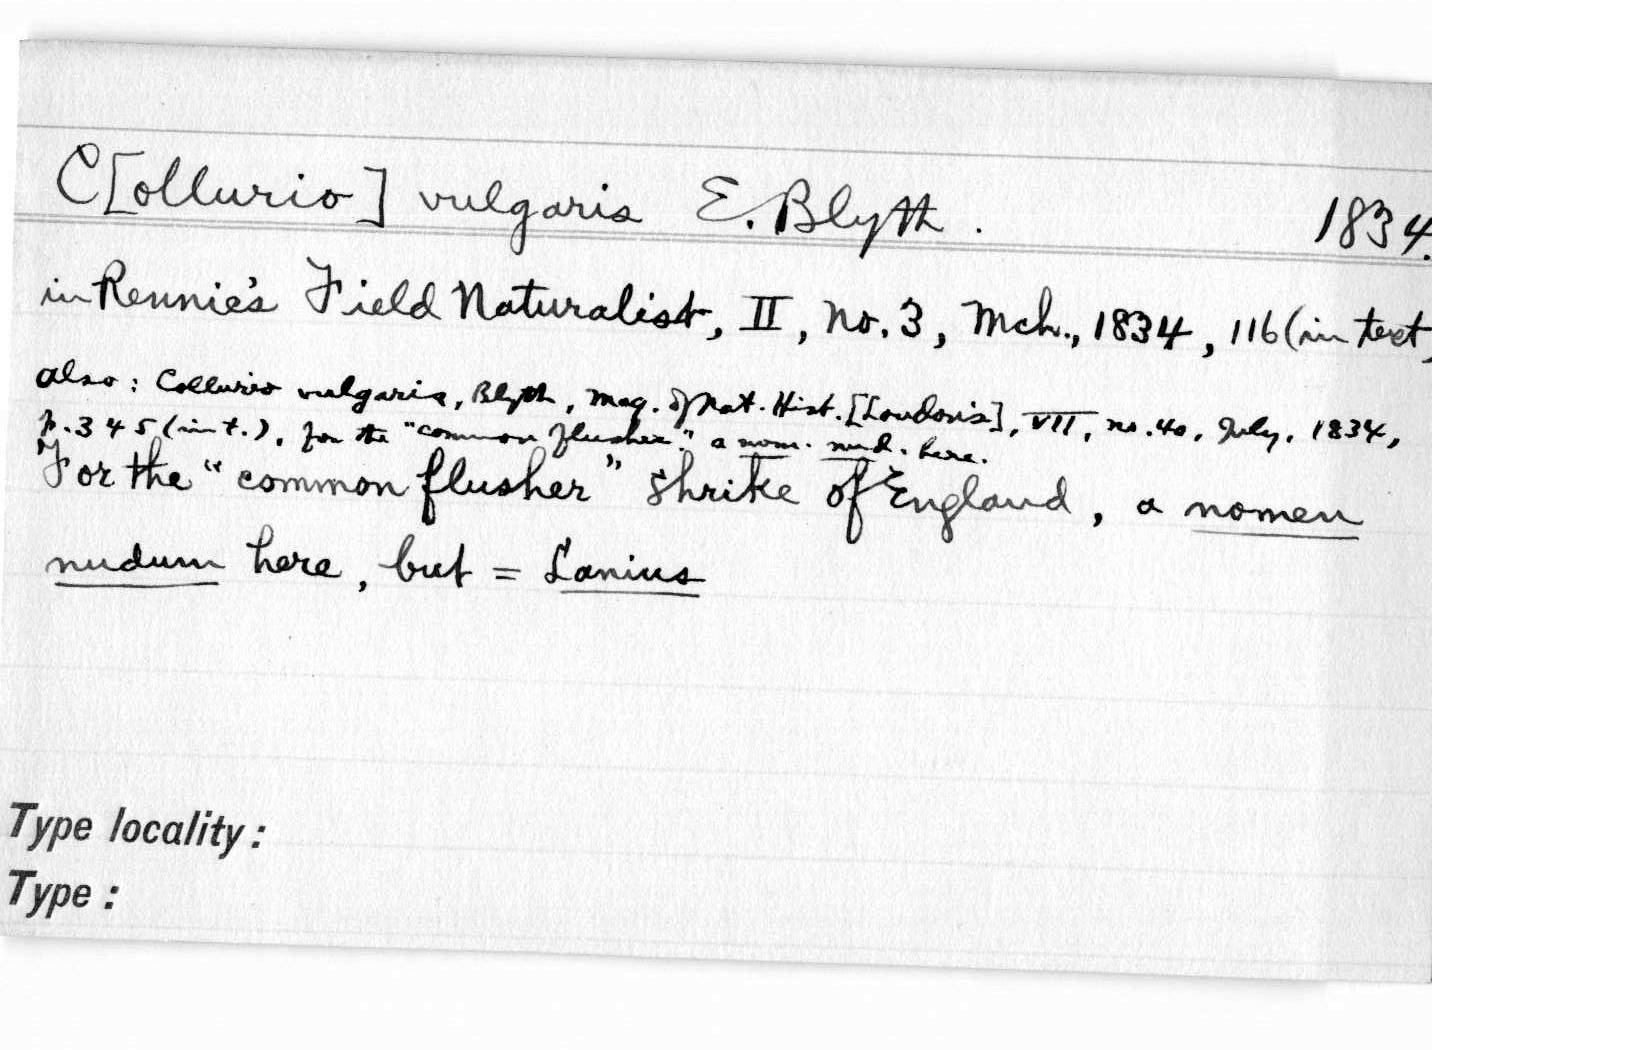 C[ollurio] vulgaris E. Blyth. 1834.
in Rennie's Field Naturalist, II, no. 3, Mch., 1834, 116 (in text)
also: Collurio vulgaris, Blyth, Mag. of Nat. Hist. [Loudon's], VII, no. 40, July, 1834,
p. 345 (in t.), for the "common flusher." a nom. nud. here.
For the "common flusher" shrike of England, a nomen
nudum here, but = Lanius
Type locality:
Type: